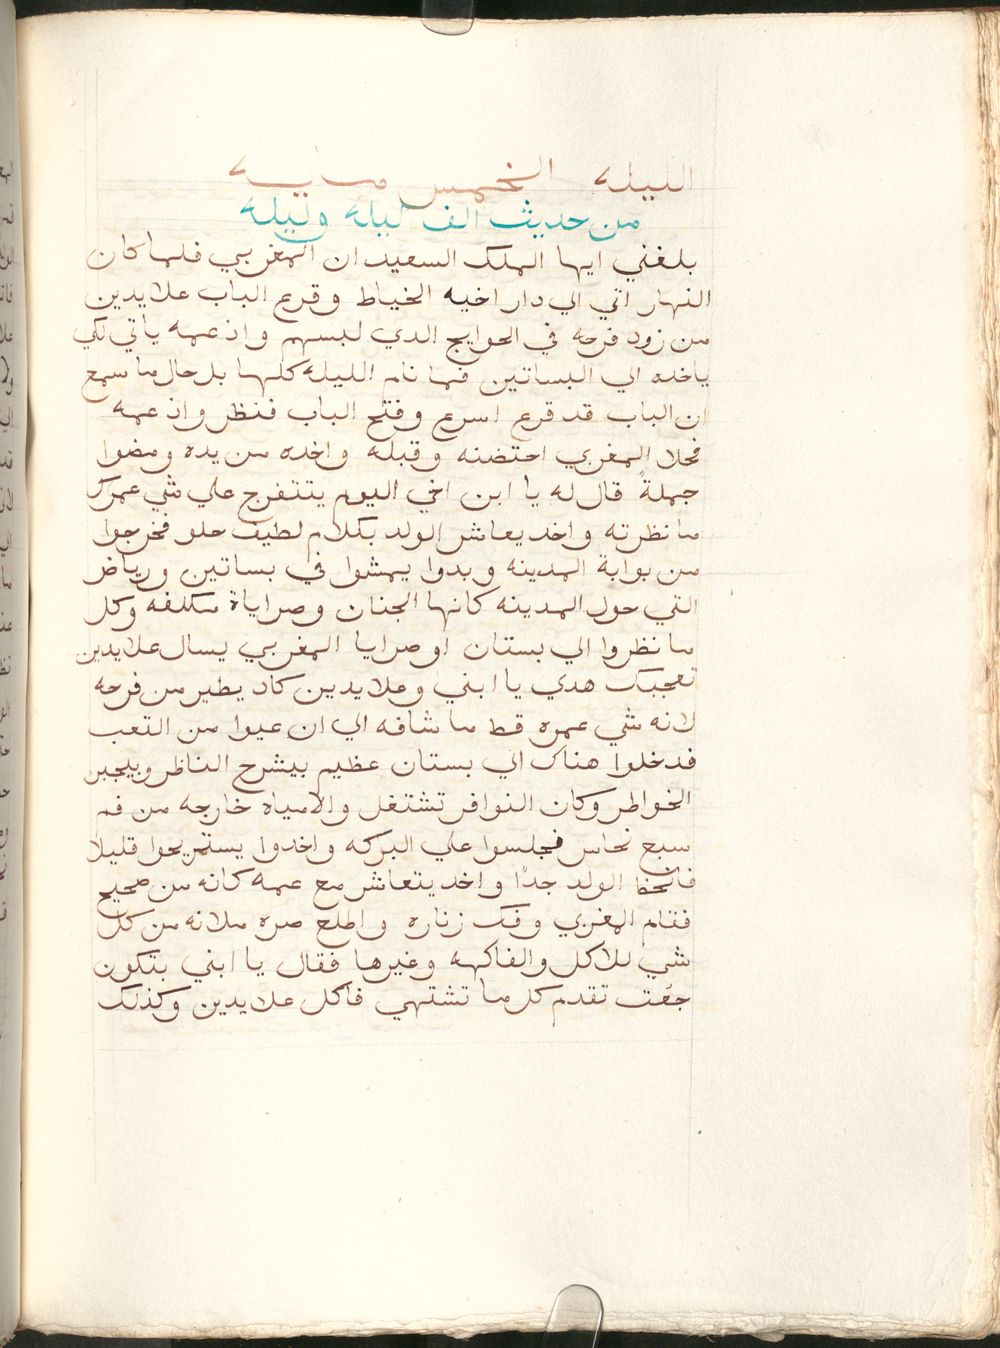 الليله الخمس مايه
من حديث الف ليله وليله
بلغني ايها الملك السعيد ان المغربي فلما كان
النهار اتي الي دار اخيه الخياط وقرع الباب علايدين
من زود فرحه في الحوايج الدي لبسهم وان عمه ياتي لكي
ياخده الي البساتين فما نام الليله كلها بل حال ما سمع
ان الباب قد قرع اسرع وفتح الباب فنظر وان عمه
المغربي احتضنه وقبله واخده من يده ومضوا
جملةً قال له يا ابن اخي اليوم يتتفرج علي شي عمرك
ما نظرته واخد يعاشر الولد بكلام لطيف حلو فخرجوا
من بوابة المدينه وبدوا يمشوا في بساتين ورياض
التي حول المدينه كانها الجنان وصراياة مكلفه وكل
ما نظروا الي بستان او صرايا المغربي يسال علايدين
تعجبك هدي يا ابني وعلايدين كاد يطير من فرحه
لانه شي عمره قط ما شافه الي ان عيوا من التعب
فدخلوا هناك الي بستان عظيم بيشرح الناظر
الخواطر وكان النوافر تشتغل والامياه خارجه من فم
سبع نحاس فجلسوا علي البركه واخدوا يستريحوا قليلا
فانحظ الولد جدًا واخد يتعاشر مع عمه كانه من صحيح
فقام المغربي وفك زناره واطلع صره ملانه من كل
شي للاكل والفاكهه وغيرها فقال يا ابني بتكون
جعت تقدم كل ما تشتهي فاكل علايدين وكذلك